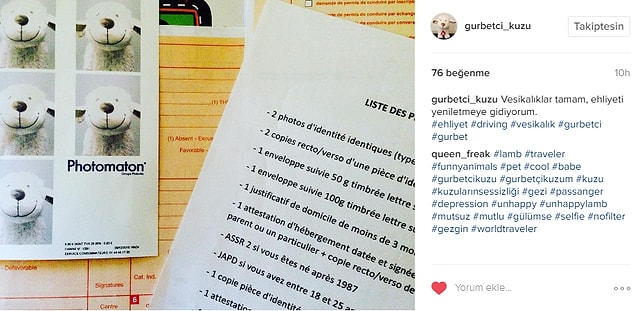 demande de permis de conduire par échange
Photomaton
(1) Absent - Excusé
Favorable -
Défavorable
Cat. Ind.
Centre
6
LISTE DES
- 2 photos d'identité identiques (type
- 2 copies recto/verso d'une pièce d'id
- 1 enveloppe suivie 50 g timbrée lettre su
- 1 enveloppe suivie 100g timbrée lettre s
- 1 justificatif de domicile de moins de 3 mo
- 1 attestation d'hébergement datée et signée
parent ou un particulier + copie recto/verso de
- ASSR 2 si vous êtes né après 1987
- JAPD si vous avez entre 18 et 25 a
- 1 copie pièce d'identité
- 1 attestation
gurbetci_kuzu
Takiptesin
76 beğenme
10h
gurbetci_kuzu Vesikalıklar tamam, ehliyeti
yeniletmeye gidiyorum.
#ehliyet #driving #vesikalık #gurbetci
#gurbet
queen_freak #lamb #traveler
#funnyanimals #pet #cool #babe
#gurbetcikuzu #gurbetçikuzum #kuzu
#kuzularınsessizliği #gezi #passanger
#depression #unhappy #unhappylamb
#mutsuz #mutlu #gülümse #selfie #nofilter
#gezgin #worldtraveler
Yorum ekle...